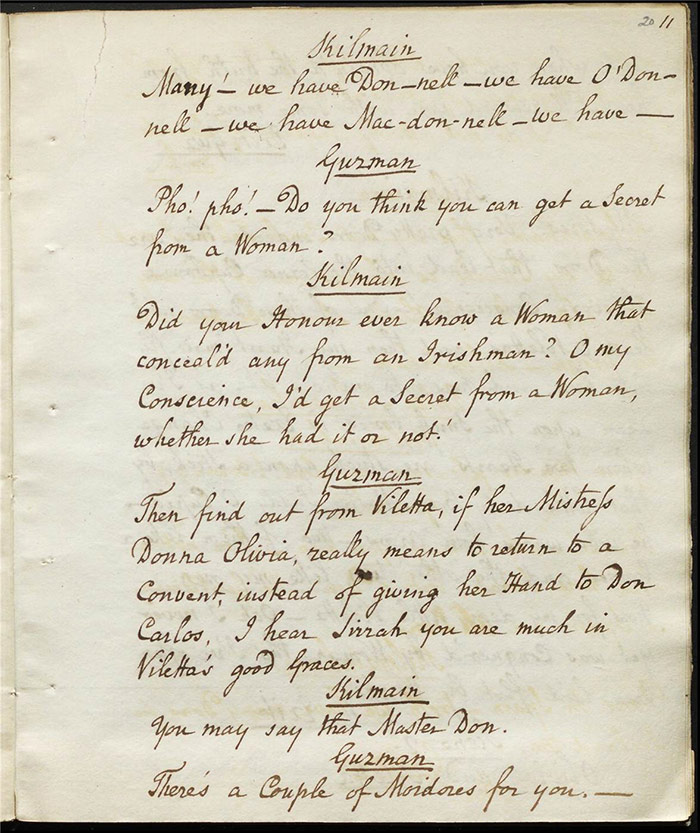 20 11
Kilmain
Many! – we have Don-nell – we have O'Don-
nell – we have Mac-don-nell – we have —
Guzman
Pho! pho! – Do you think you can get a Secret
from a Woman?
Kilmain
Did your Honour ever know a Woman that
conceal'd any from an Irishman? O my
Conscience, I'd get a Secret from a Woman,
whether she had it or not.
Guzman
Then find out from Viletta, if her Mistreſs
Donna Olivia, really means to return to a
Convent, instead of giving her Hand to Don
Carlos. I hear Sirrah you are much in
Viletta's good Graces.
Kilmain
You may say that Master Don.
Guzman
There's a Couple of Moidores for you. —